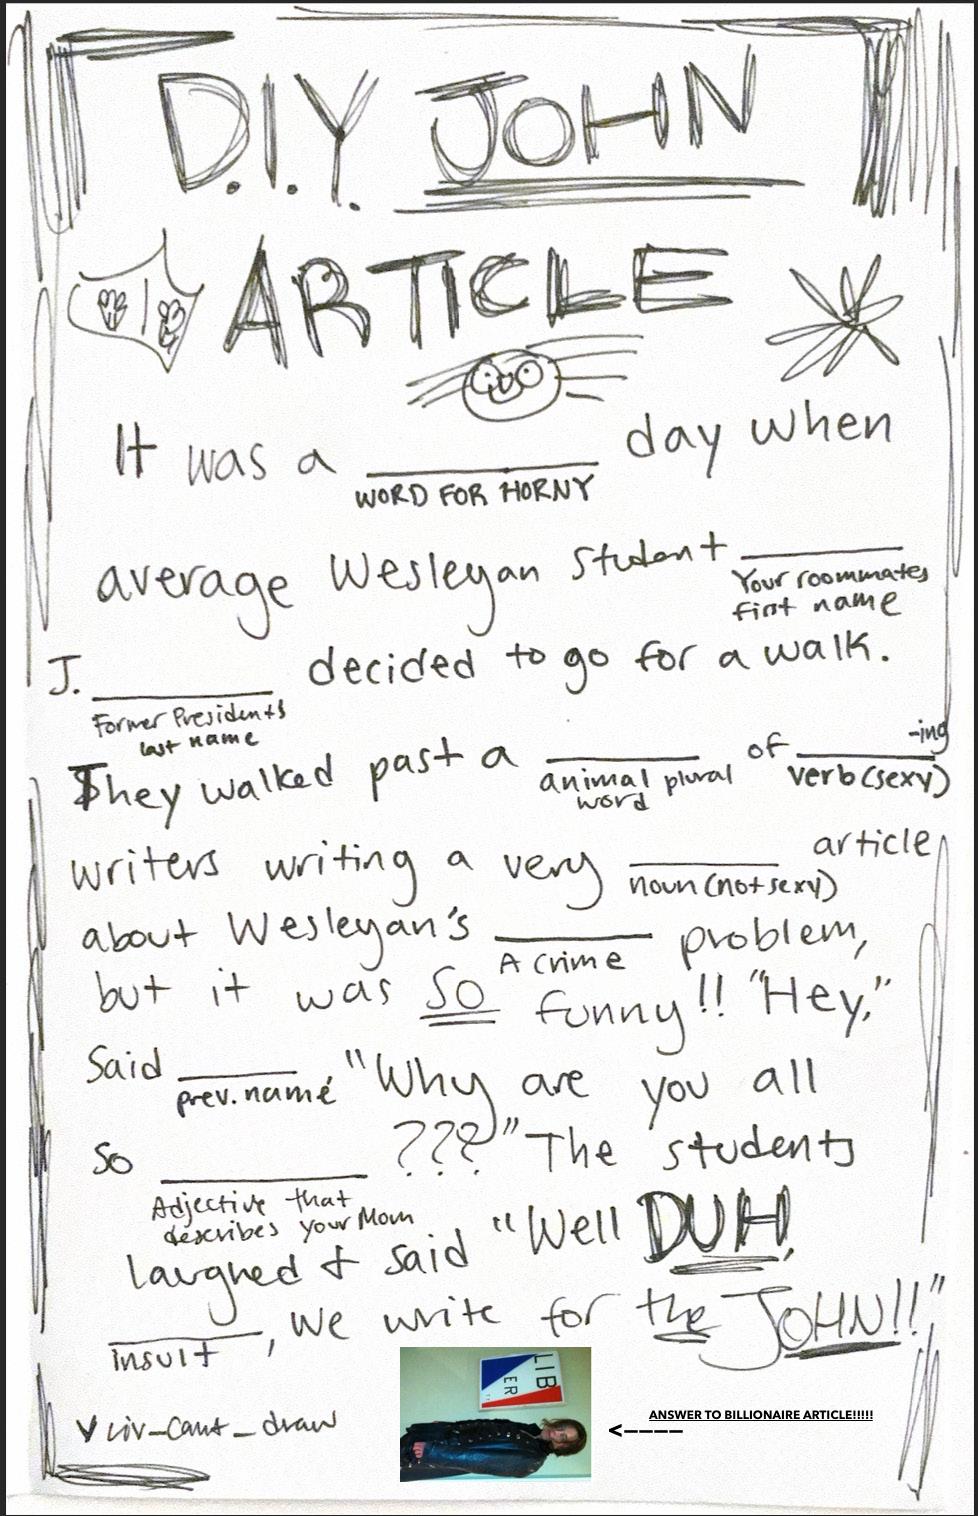 D.I.Y. JOHN
ARTICLE
It was a ______ day when
WORD FOR HORNY
average Wesleyan student ______
Your roommates
first name
J. ______ decided to go for a walk.
Former Presidents
last name
They walked past a ______ of ______-ing
animal plural
word
verb (sexy)
writers writing a very ______ article
noun (not sexy)
about Wesleyan's ______ problem,
A crime
but it was SO funny!! "Hey,"
Said ______, "Why are you all
prev. name
So ______ ???" The students
Adjective that
describes your Mom
laughed & said "Well DUH,
______, we write for the JOHN!!"
insult
liv_cant_draw
LIB
ER
ANSWER TO BILLIONAIRE ARTICLE!!!!!
<----